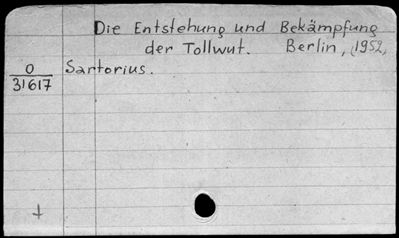 Die Entstehung und Bekämpfung
der Tollwut. Berlin, (1952,
O
31617
Sartorius.